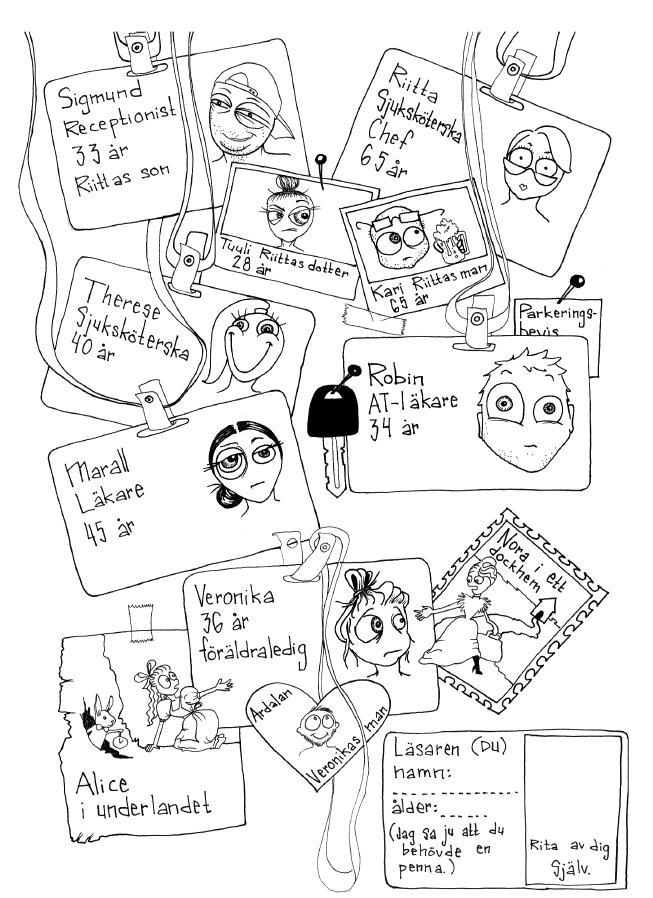 Sigmund
Receptionist
33 år
Riittas son
Riitta
Sjuksköterska
Chef
65 år
Tuuli Riittas dotter
28 år
Kari Riittas man
65 år
Therese
Sjuksköterska
40 år
Parkerings-
bevis
Robin
AT-läkare
34 år
Marall
Läkare
45 år
Nora i ett
dockhem
Veronika
36 år
föräldraledig
Ardalan
Veronikas man
Alice
i underlandet
Läsaren (DU)
namn:
ålder:
(Jag sa ju att du
behövde en
penna.)
Rita av dig
Själv.